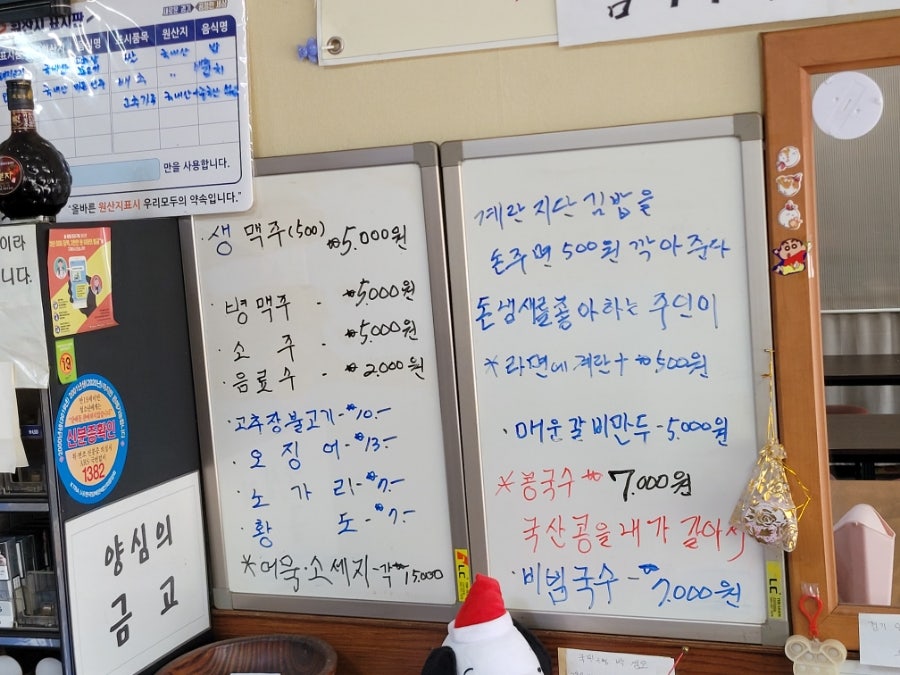 원산지 표시판
표시품목 원산지 음식명
쌀 국내산 밥
배추 〃
고춧가루 국내산
만을 사용합니다.
"올바른 원산지표시 우리모두의 약속입니다."
이라
니다.
신분증확인
1382
양심의
금고
생 맥주(500) ₩5.000원
· 병맥주 - ₩5,000원
· 소 주 - ₩5,000원
· 음료수 - ₩2.000원
· 고추장불고기-₩10.-
· 오 징 어-₩13.-
· 노 가 리-₩7.-
· 황 도-₩7.-
*어묵·소세지-각₩15.000
계란 지단 김밥을
돈주면 500원 깍아준다
돈냄새를좋아하는 주인이
*라면에 계란+ ₩500원
· 매운갈비만두-5.000원
*콩국수 ₩7.000원
국산콩을 내가 갈아서
· 비빔국수-₩7.000원